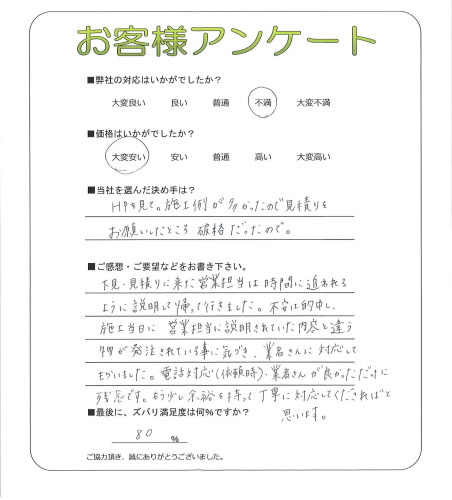 お客様アンケート
■弊社の対応はいかがでしたか?
大変良い 良い 普通 不満 大変不満
■価格はいかがでしたか?
大変安い 安い 普通 高い 大変高い
■当社を選んだ決め手は?
HPを見て。施工例が多かったので見積りを
お願いしたところ破格だったので。
■ご感想・ご要望などをお書き下さい。
下見・見積りに来た営業担当は時間に追われる
ように説明して帰って行きました。不安は的中し、
施工当日に営業担当に説明されていた内容と違う
物が発注されている事に気づき、業者さんに対応して
もらいました。電話対応(依頼時)・業者さんが良かっただけに
残念です。もう少し余裕を持って丁寧に対応してくださればと
思います。
■最後に、ズバリ満足度は何%ですか?
80 %
ご協力頂き、誠にありがとうございました。